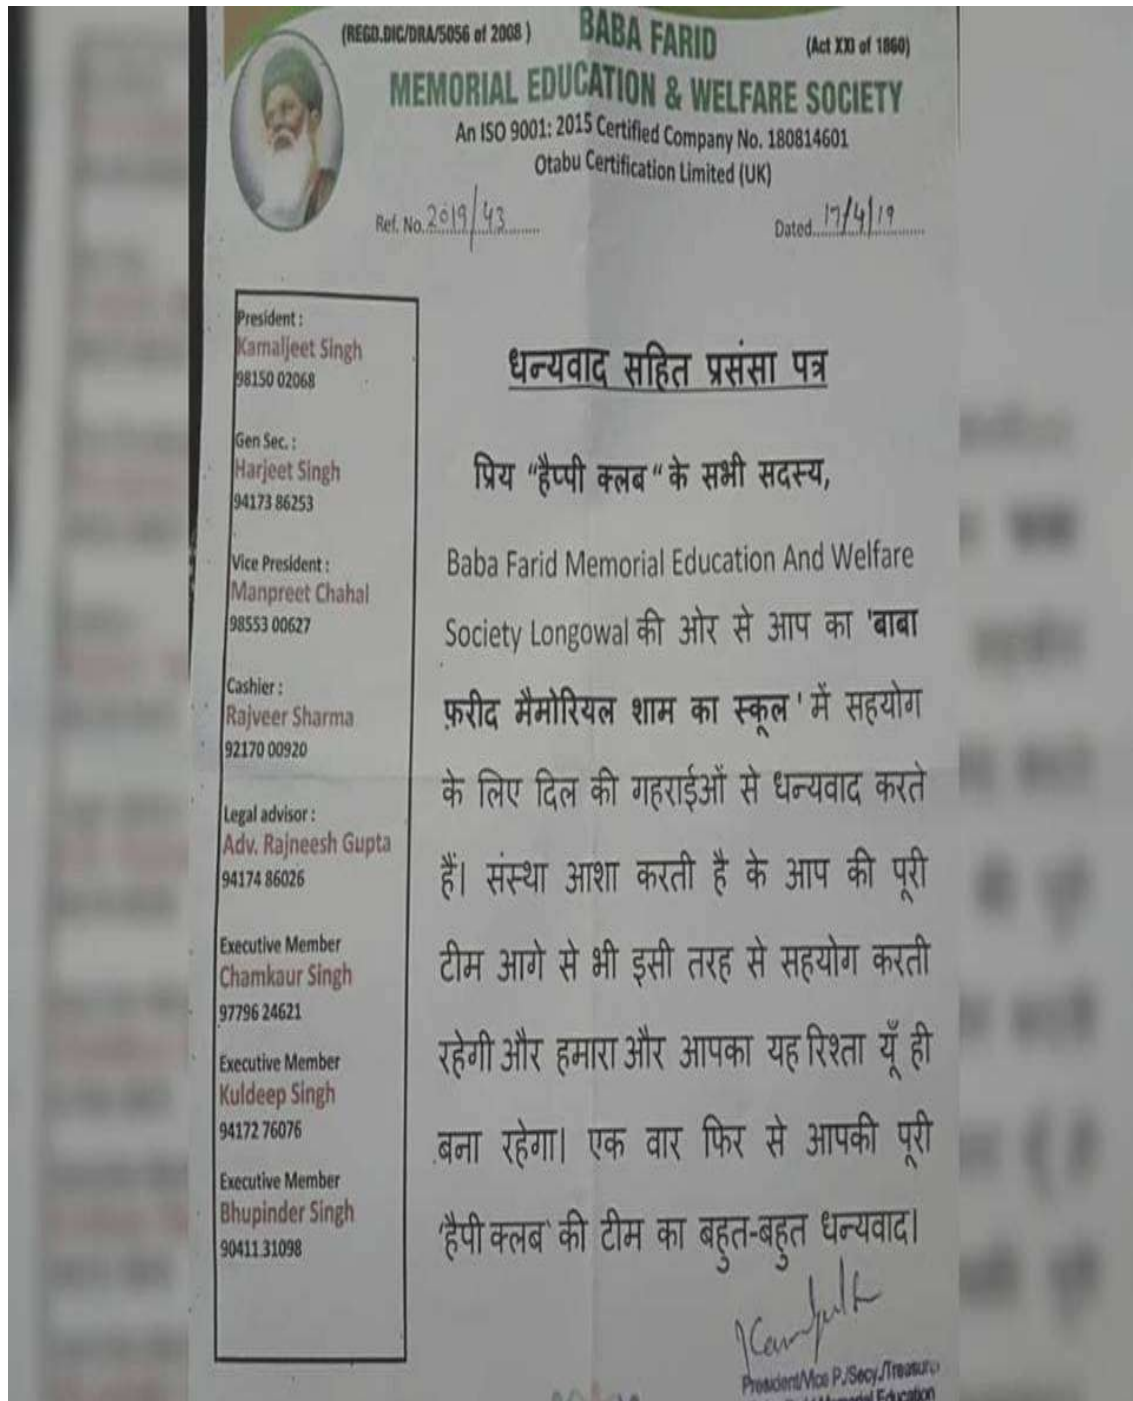 (REGD.DIC/DRA/5056 of 2008 )
BABA FARID
(Act XXI of 1860)
MEMORIAL EDUCATION & WELFARE SOCIETY
An ISO 9001: 2015 Certified Company No. 180814601
Otabu Certification Limited (UK)
Ref. No. 2019/43
Dated 17/4/19
President :
Kamaljeet Singh
98150 02068
Gen Sec. :
Harjeet Singh
94173 86253
Vice President :
Manpreet Chahal
98553 00627
Cashier :
Rajveer Sharma
92170 00920
Legal advisor :
Adv. Rajneesh Gupta
94174 86026
Executive Member
Chamkaur Singh
97796 24621
Executive Member
Kuldeep Singh
94172 76076
Executive Member
Bhupinder Singh
90411 31098
धन्यवाद सहित प्रसंसा पत्र
प्रिय “हैप्पी क्लब“ के सभी सदस्य,
Baba Farid Memorial Education And Welfare
Society Longowal की ओर से आप का 'बाबा
फ़रीद मैमोरियल शाम का स्कूल' में सहयोग
के लिए दिल की गहराईओं से धन्यवाद करते
हैं। संस्था आशा करती है के आप की पूरी
टीम आगे से भी इसी तरह से सहयोग करती
रहेगी और हमारा और आपका यह रिश्ता यूँ ही
बना रहेगा। एक वार फिर से आपकी पूरी
'हैपी क्लब' की टीम का बहुत-बहुत धन्यवाद।
President/Vice P./Secy./Treasurer
Memorial Education